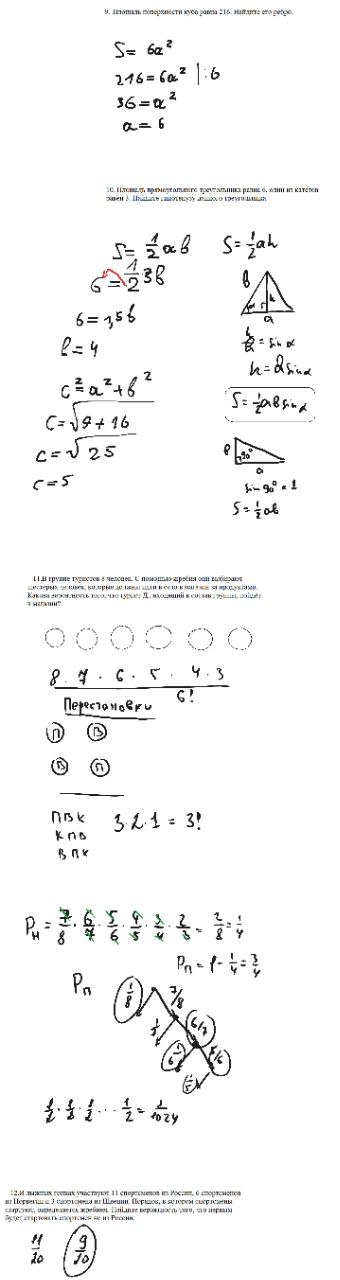 9. Площадь поверхности куба равна 216. Найдите его ребро.
S = 6a²
216 = 6a² | :6
36 = a²
a = 6
10. Площадь прямоугольного треугольника равна 6, один из катетов
равен 3. Найдите гипотенузу данного треугольника.
S = 1/2 ab
6 = 1/2 3b
6 = 1,5b
b = 4
c² = a² + b²
c = √9 + 16
c = √25
c = 5
S = 1/2 ah
b
h
a
= sin α
S = 1/2 ab sin α
90°
a
sin 90° = 1
S = 1/2 ab
11. В группе туристов 8 человек. С помощью жребия они выбирают
шестерых человек, которые должны идти в село в магазин за продуктами.
Какова вероятность того, что турист Д., входящий в состав группы, пойдёт
в магазин?
8 · 7 · 6 · 5 · 4 · 3
6!
Перестановки
П В
В П
П В К
К П В
В П К
3 · 2 · 1 = 3!
Pн = 7/8 · 6/7 · 5/6 · 4/5 · 3/4 · 2/3 = 2/8 = 1/4
Pп = 1 - 1/4 = 3/4
Pп
1/8 7/8
1/7 6/7
1/6 5/6
1/5
1/2 · 1/2 · 1/2 ... 1/2 = 1/1024
12. В лыжных гонках участвуют 11 спортсменов из России, 6 спортсменов
из Норвегии и 3 спортсмена из Швеции. Порядок, в котором спортсмены
стартуют, определяется жребием. Найдите вероятность того, что первым
будет стартовать спортсмен не из России.
11/20 9/20